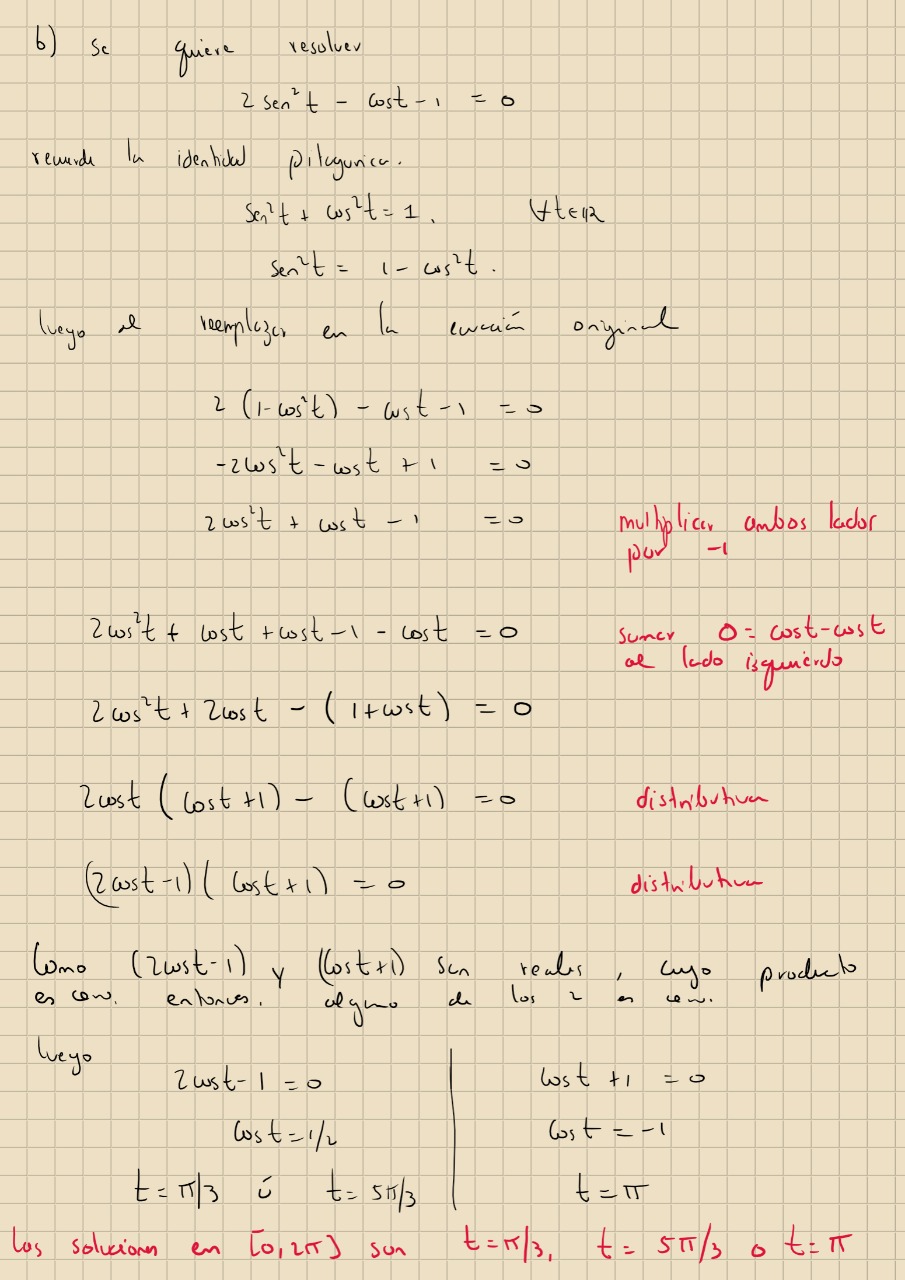 b) Se quiere resolver
2 sen²t - cost - 1 = 0
recuerde la identidad pitagorica.
Sen²t + cos²t = 1. ∀t∈ℝ
sen²t = 1 - cos²t.
luego al reemplazar en la ecuación original
2 (1-cos²t) - cost - 1 = 0
-2cos²t - cost + 1 = 0
2cos²t + cost - 1 = 0 multiplicar ambos lados
por -1
2cos²t + cost + cost - 1 - cost = 0 sumar 0 = cost - cost
al lado izquierdo
2cos²t + 2cost - (1+cost) = 0
2cost (cost+1) - (cost+1) = 0 distributiva
(2cost-1)(cost+1) = 0 distributiva
Como (2cost-1) y (cost+1) son reales, cuyo producto
es cero. entonces. alguno de los 2 es cero.
luego
2cost - 1 = 0 cost + 1 = 0
cost = 1/2 cost = -1
t = π/3 ó t = 5π/3 t = π
las soluciones en [0,2π] son t = π/3, t = 5π/3 o t = π